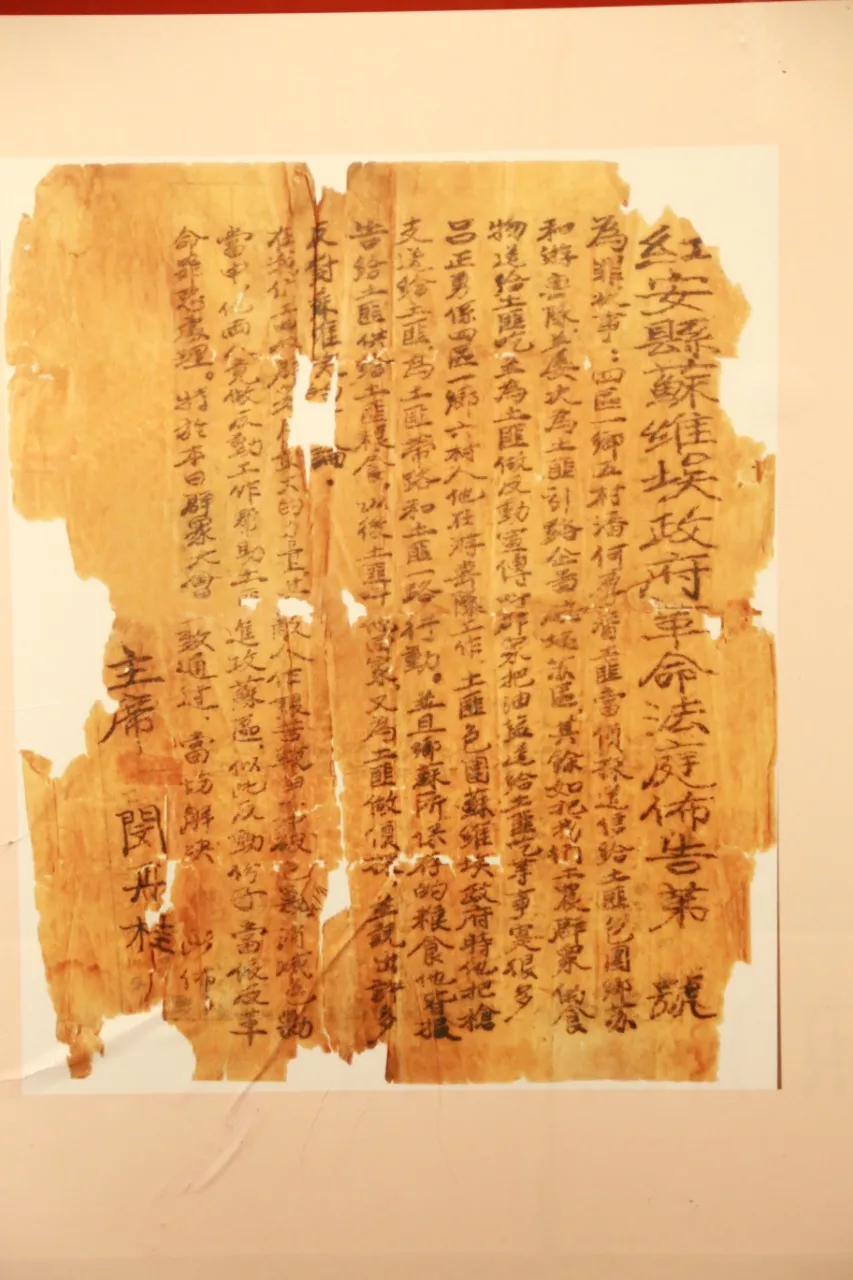 紅安縣蘇維埃政府革命法庭佈告第 號
為罪狀事：四區一鄉五村潘何 替土匪當偵探送信給土匪包圍鄉蘇
和游 隊並屢次為土匪引路企圖 蘇區，其餘如把我們工農群眾 食
物送給土匪吃並為土匪做反動宣傳叫群眾把油鹽送給土匪吃等事實很多
呂正勇係四區一鄉六村人他在游擊隊工作，土匪包圍蘇維埃政府時他把槍
支送給土匪為土匪帶路和土匪一路行動。並且鄉蘇所保存的糧食他皆报
告給土匪供給土匪糧食，以後土匪叫他回家，又為土匪做偵探，並說出許多
反對蘇維埃 論
在我们 的力量 敵人作 消滅 動
當中，他兩人竟做反動工作帮助土 進攻蘇區，似此反動份子當依反革
命 處理。特於本日群眾大會 致通过，當場解決 此佈
主席 閔丹桂